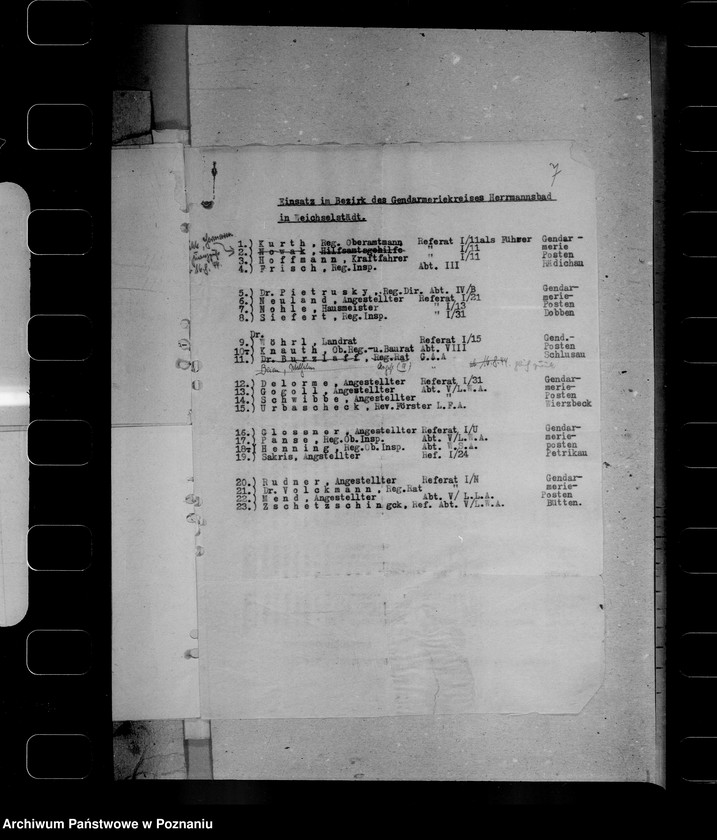 7
Einsatz im Bezirk des Gendarmeriekreises Herrmannsbad
in Weichselstädt.
1.) K u r t h , Reg. Oberamtmann Referat I/11als Führer Gendar-
2.) N o w a k , Hilfsamtsgehilfe " I/11 merie
3.) H o f f m a n n , Kraftfahrer " I/11 Posten
4.) F r i s c h , Reg.Insp. Abt. III Rädichau
5.) Dr. P i e t r u s k y , Reg.Dir. Abt. IV/B Gendar-
6.) N e u l a n d , Angestellter Referat I/21 merie-
7.) N o h l e , Hausmeister " I/13 Posten
8.) S i e f e r t , Reg.Insp. " I/31 Dobben
Dr.
9.) W ö h r l , Landrat Referat I/15 Gend.-
10.) K n a u t h , Ob.Reg.-u.Baurat Abt. VIII Posten
11.) Dr. B u r z l a f f , Reg.Rat G.A.A Schlusau
12.) D e l o r m e , Angestellter Referat I/31 Gendar-
13.) G o g o l l , Angestellter Abt. V/L.W.A. merie-
14.) S c h w i b b e , Angestellter " Posten
15.) U r b a s c h e c k , Rev.Förster L.F.A. Wierzbeck
16.) G l o s s n e r , Angestellter Referat I/U Gendar-
17.) P a n s e , Reg.Ob.Insp. Abt. V/L.W.A. merie-
18.) H e n n i n g , Reg.Ob.Insp. Abt. W.S.A. posten
19.) Sakris, Angstellter Ref. I/24 Petrikau
20.) R u d n e r , Angestellter Referat I/N Gendar-
21.) Dr. V o l c k m a n n , Reg.Rat " merie-
22.) M e n d , Angestellter Abt. V/ L.L.A. Posten
23.) Z s c h e t z s c h i n gck, Ref. Abt. V/L.W.A. Bütten.
Archiwum Państwowe w Poznaniu